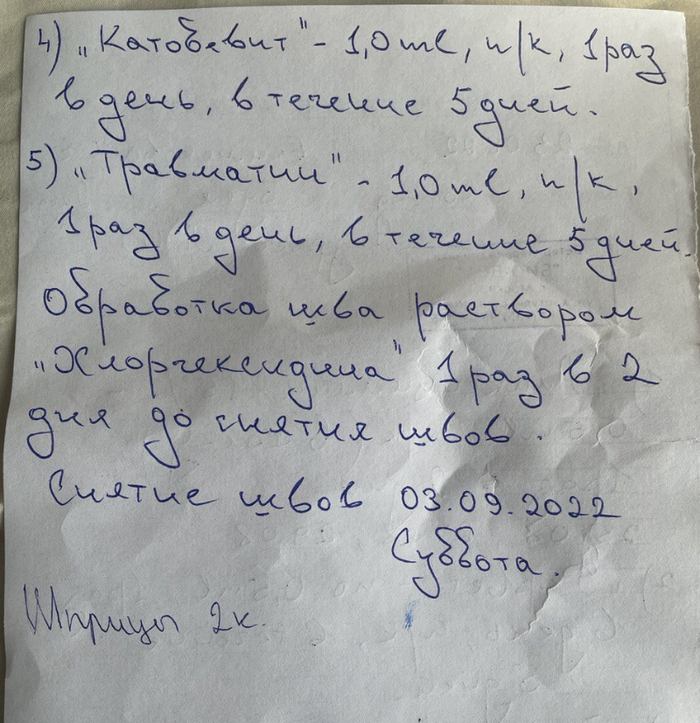 4) „Катобевит" - 1,0 ml, п/к, 1 раз
в день, в течение 5 дней.
5) „Травматин" - 1,0 ml, п/к,
1 раз в день, в течение 5 дней.
Обработка шва раствором
„Хлоргексидина" 1 раз в 2
дня до снятия швов.
Снятие швов 03.09.2022
Суббота.
Шприцы 2к.